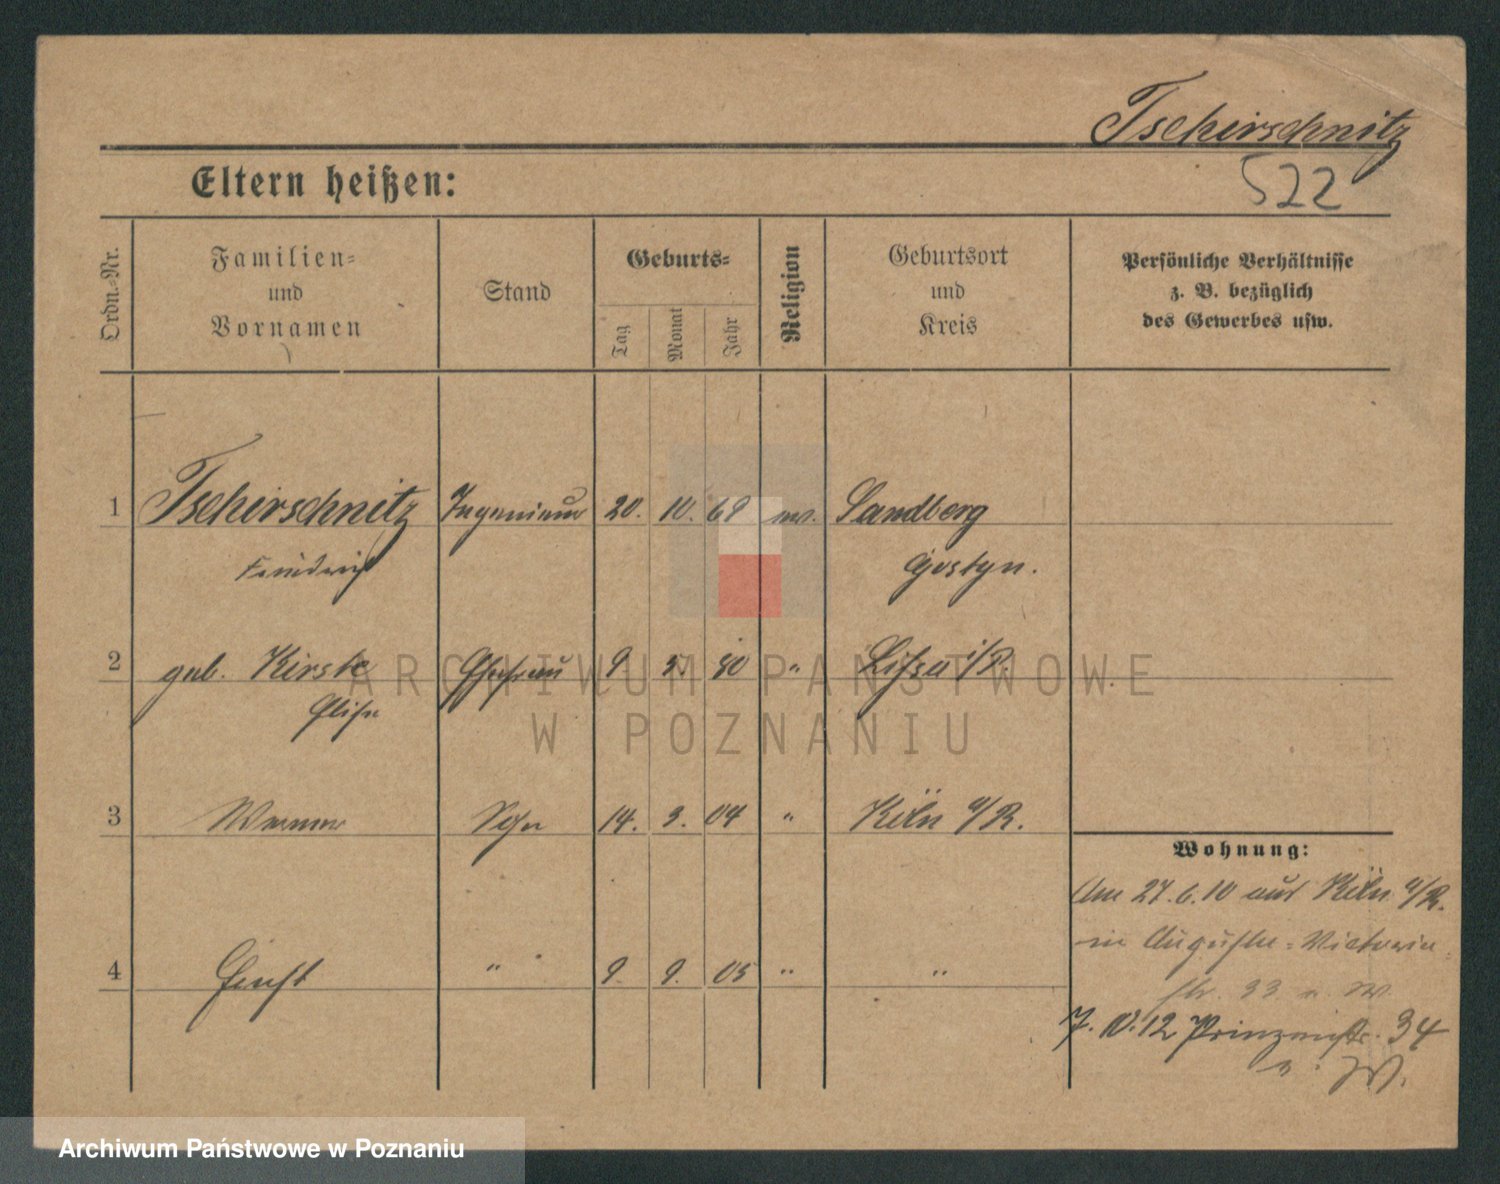 Tschirschnitz
522
Eltern heißen:
Ordn.-Nr.
Familien-
und
Vornamen
Stand
Geburts-
Tag
Monat
Jahr
Religion
Geburtsort
und
Kreis
Persönliche Verhältnisse
z. B. bezüglich
des Gewerbes usw.
1 Tschirschnitz Ingenieur 20. 10. 69 ev. Sandberg
Friedrich Gostyn.
2 geb. Kirste Ehefrau 9. 5. 80 " Lissa i/P.
Elise
3 Werner Sohn 14. 3. 04 " Köln a/R.
Wohnung:
Am 27.6.10 aus Köln a/R.
in Auguste-Victoria
str. 33 W.
4 Ernst " 9. 9. 05 " "
7. 10. 12 Prinzenstr. 34
W.
ARCHIWUM PAŃSTWOWE
W POZNANIU
Archiwum Państwowe w Poznaniu